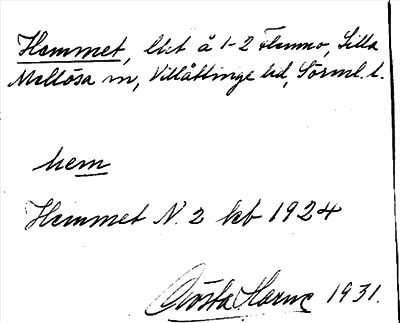 Hemmet, lht å 1-2 Flemmo, Lilla
Mellösa sn, Villåttinge hd, Sörml. l.
hem
Hemmet N. 2 kb 1924
Gösta 1931.